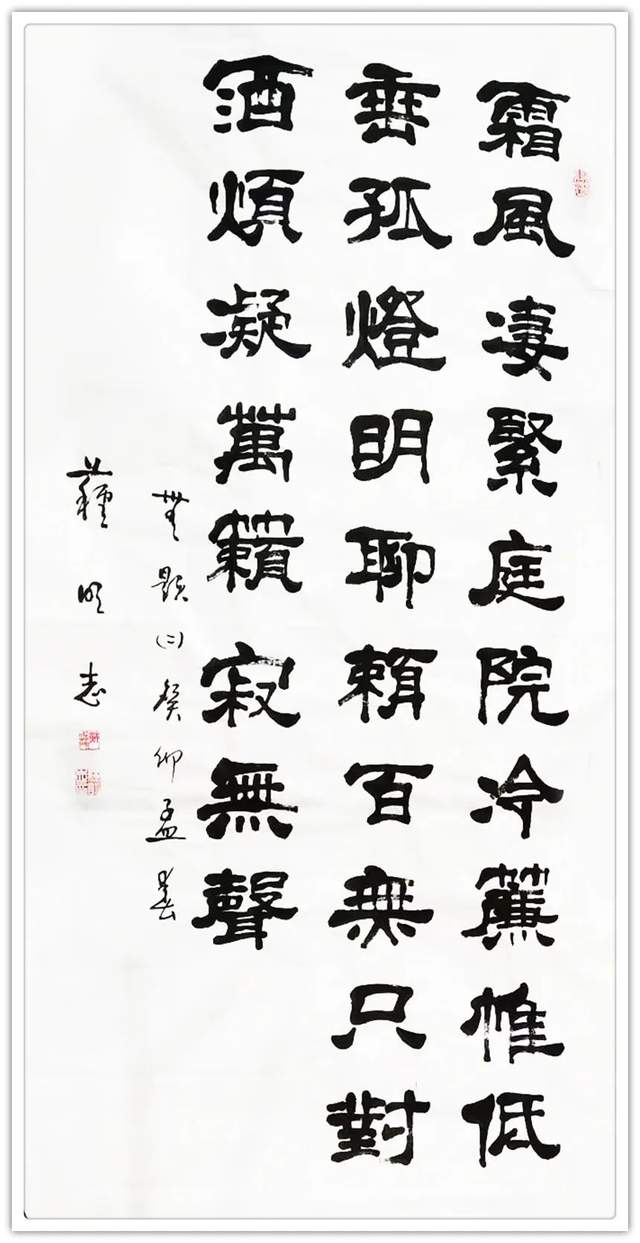 霜風淒緊庭院冷簾帷低
垂孤燈明聊賴百無只對
酒煩凝萬籟寂無聲
無題(二)癸卯孟春
明志